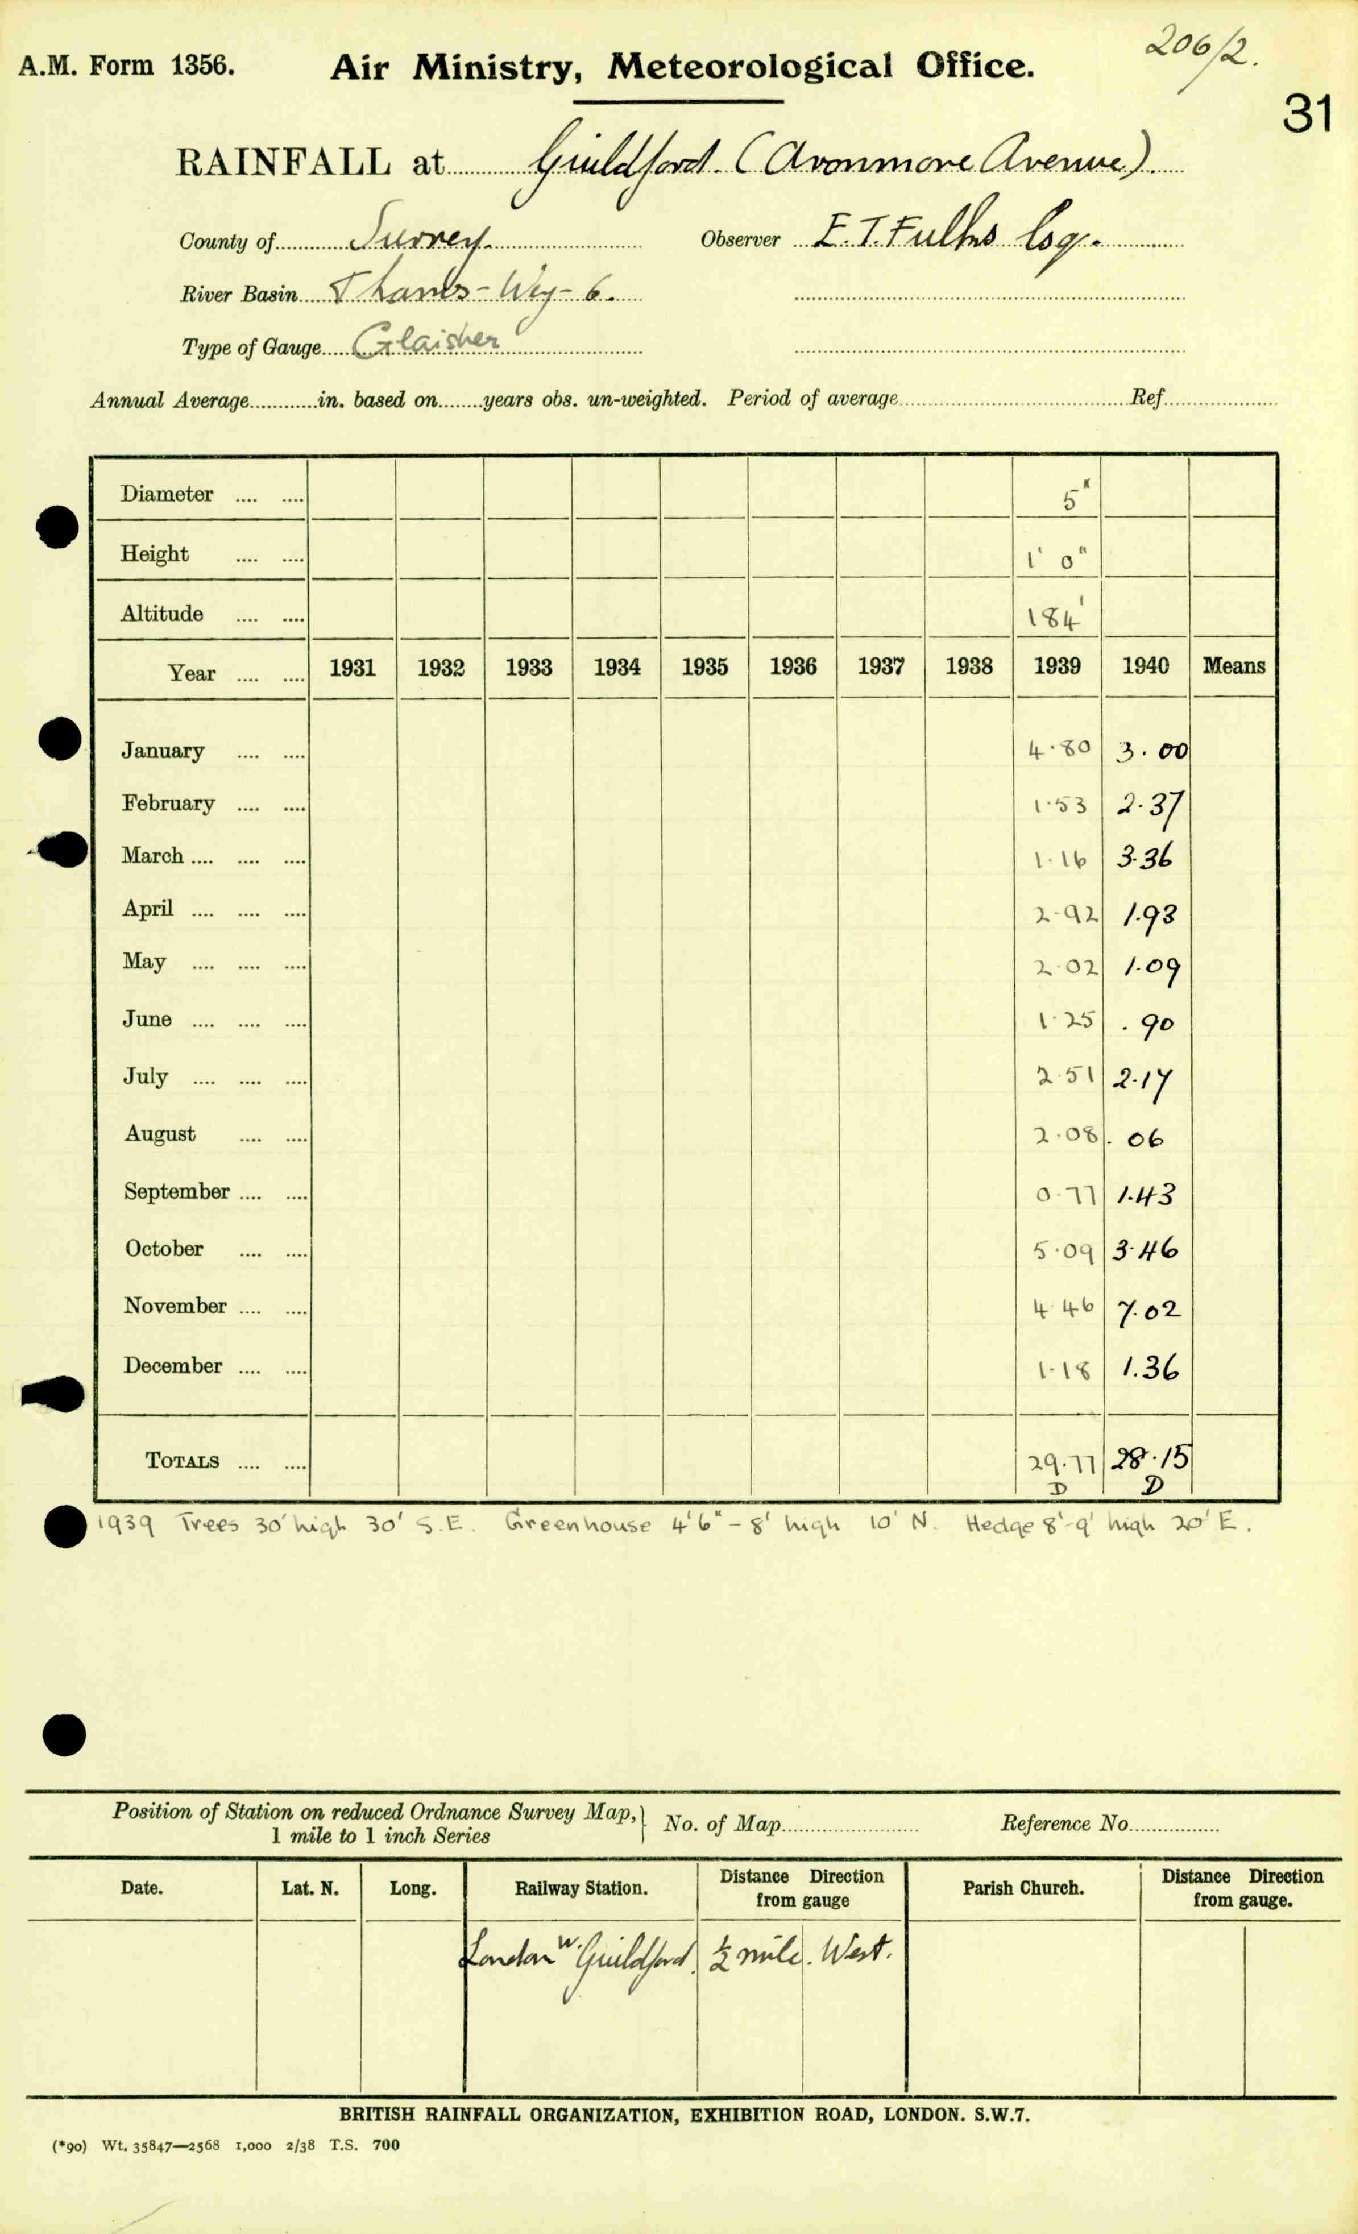 206/2.
A.M. Form 1356. Air Ministry, Meteorological Office.
31
RAINFALL at Guildford. (Avonmore Avenue).
County of Surrey. Observer E. T. Esq.
River Basin Thames - Wey - 6.
Type of Gauge Glaisher
Annual Average in. based on years obs. un-weighted. Period of average Ref
Diameter 5"
Height 1' 0"
Altitude 184'
Year 1931 1932 1933 1934 1935 1936 1937 1938 1939 1940 Means
January 4.80 3.00
February 1.53 2.37
March 1.16 3.36
April 2.92 1.93
May 2.02 1.09
June 1.25 .90
July 2.51 2.17
August 2.08 .06
September 0.77 1.43
October 5.09 3.46
November 4.46 7.02
December 1.18 1.36
TOTALS 29.77 28.15
D D
1939 Trees 30' high 30' S.E. Greenhouse 4'6" - 8' high 10' N. Hedge 8'-9' high 20' E.
Position of Station on reduced Ordnance Survey Map, No. of Map Reference No
1 mile to 1 inch Series
Date. Lat. N. Long. Railway Station. Distance Direction from gauge Parish Church. Distance Direction from gauge.
London Guildford. ½ mile. West.
BRITISH RAINFALL ORGANIZATION, EXHIBITION ROAD, LONDON. S.W.7.
(*90) Wt. 35847—2568 1,000 2/38 T.S. 700